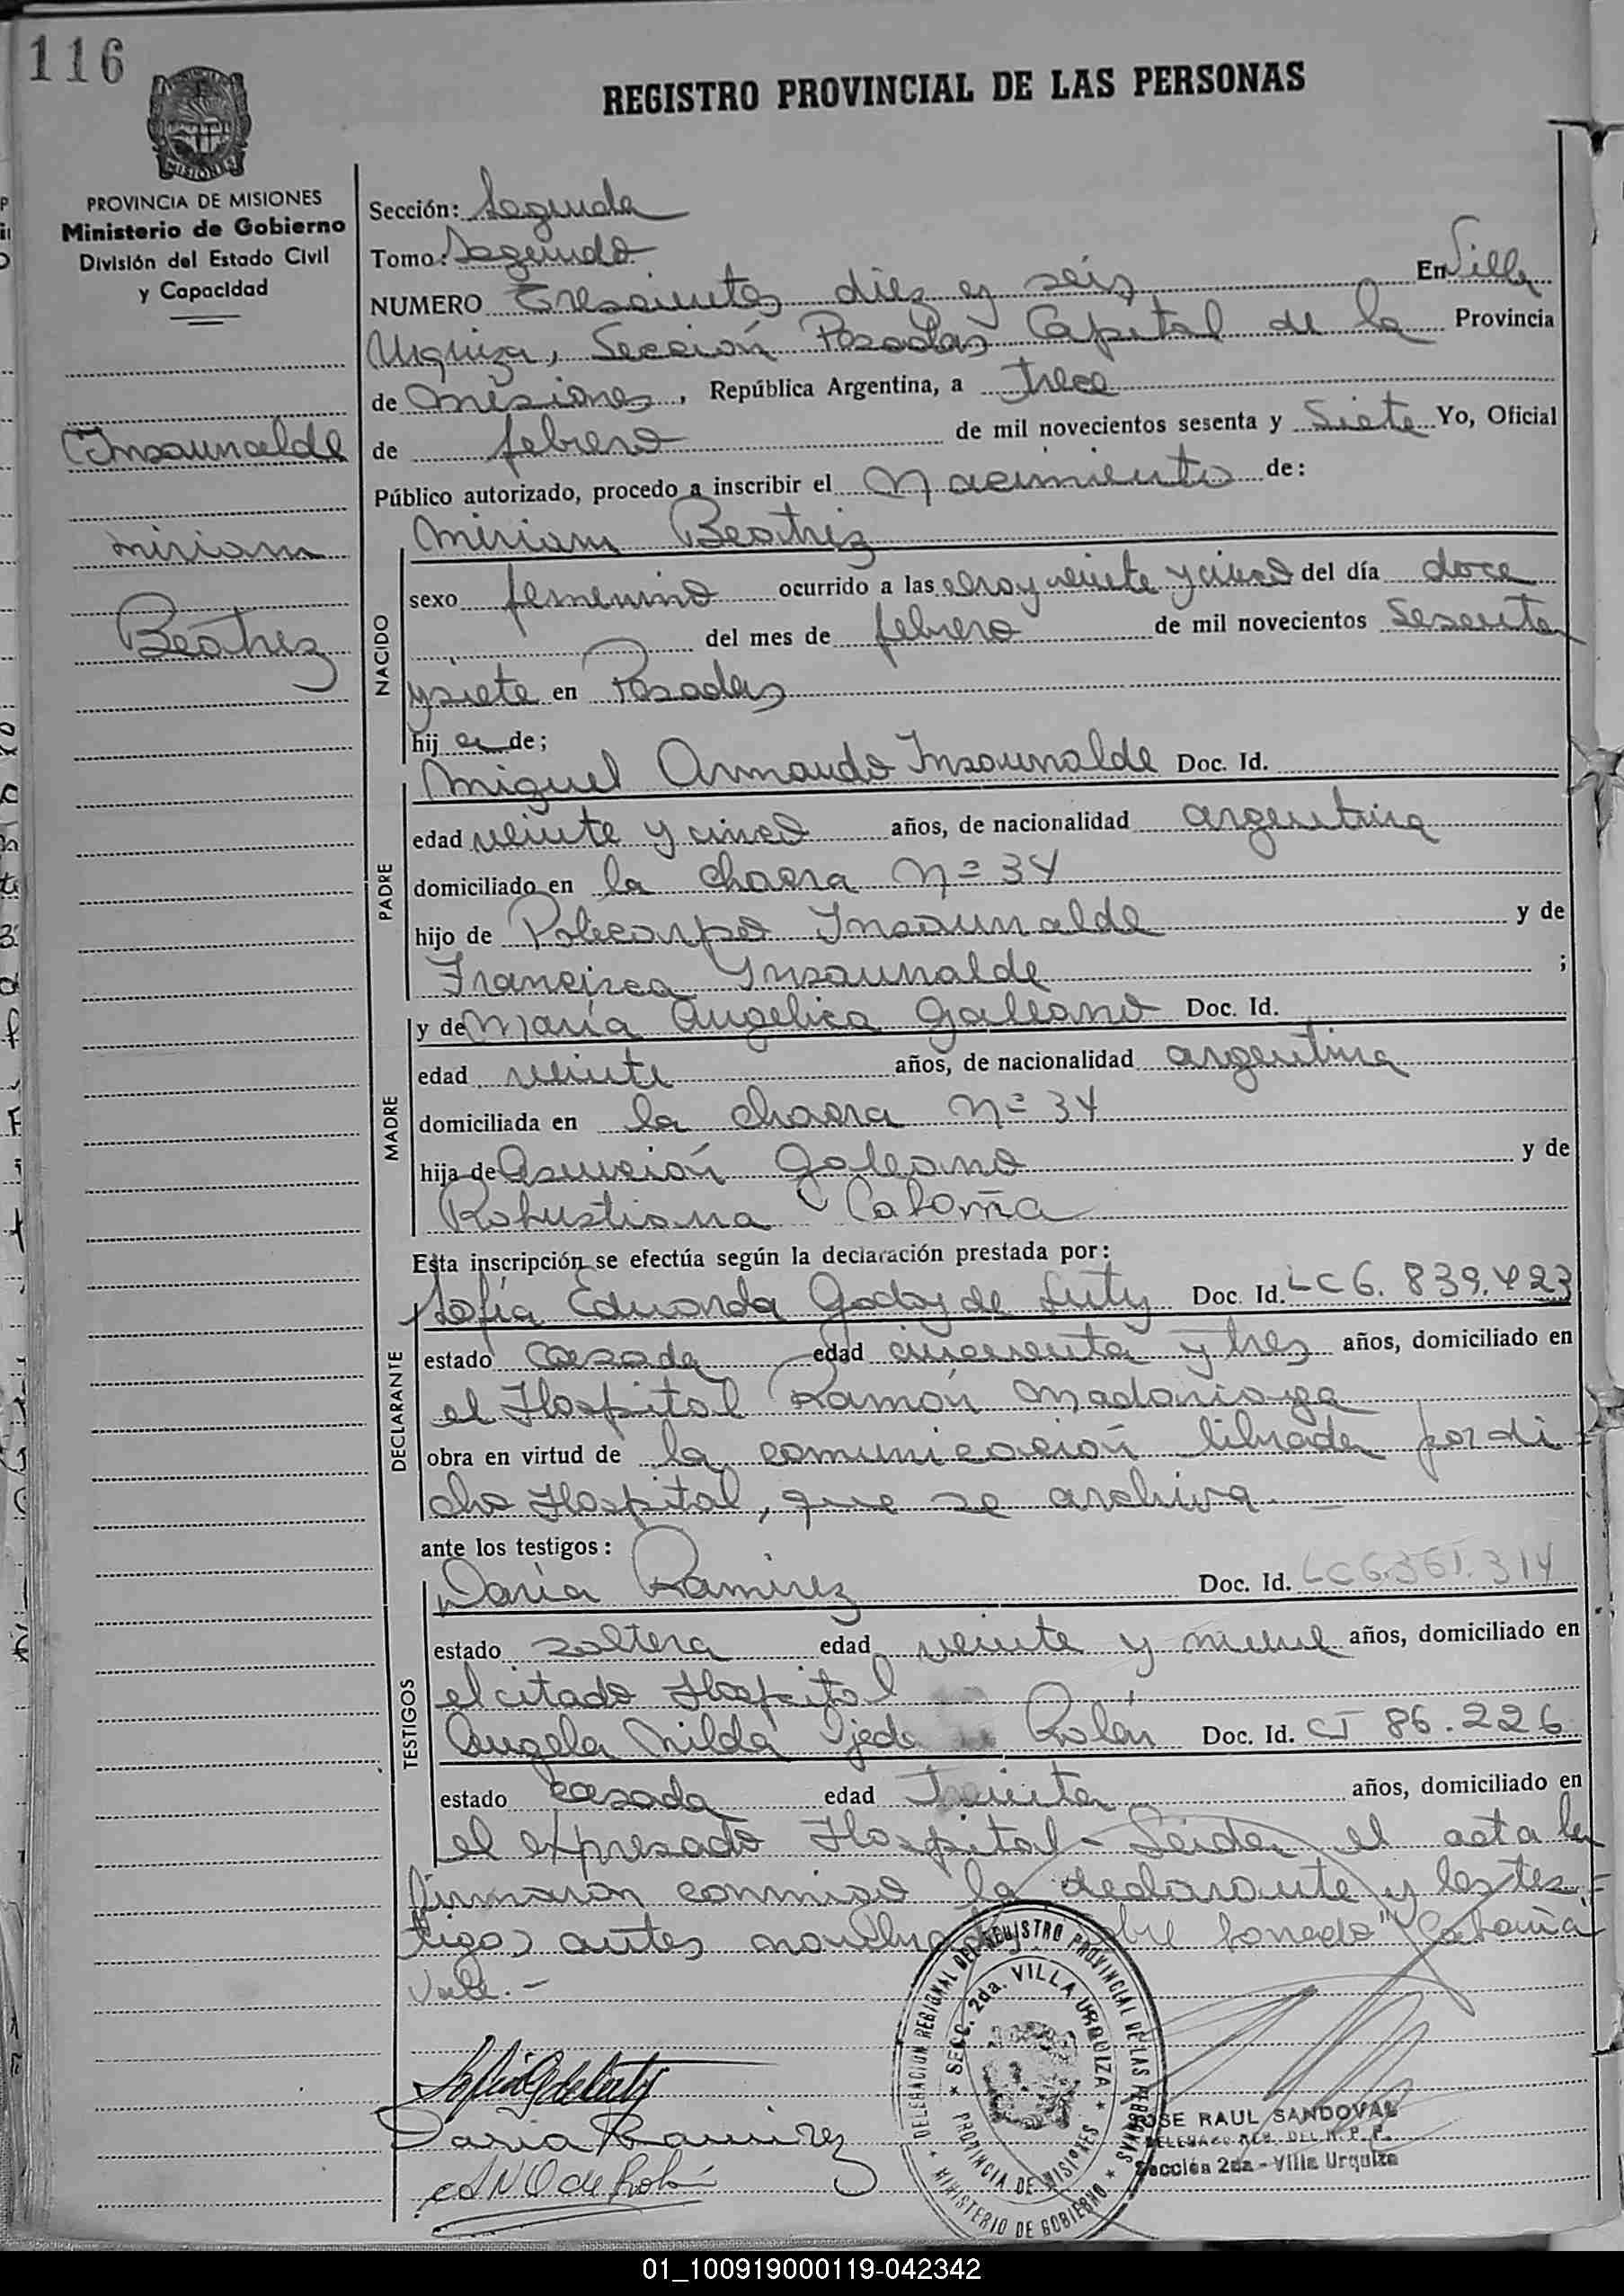 116
REGISTRO PROVINCIAL DE LAS PERSONAS
MISIONES
PROVINCIA DE MISIONES
Ministerio de Gobierno
División del Estado Civil
y Capacidad
Insaurralde
Miriam
Beatriz
Sección: Segunda
Tomo: Segundo
NUMERO Trescientos diez y seis En Villa
Urquiza, Sección Posadas Capital de la Provincia
de Misiones, República Argentina, a trece
de febrero de mil novecientos sesenta y Siete Yo, Oficial
Público autorizado, procedo a inscribir el Nacimiento de:
Miriam Beatriz
NACIDO
sexo femenino ocurrido a las cero y veinte y cinco del día doce
del mes de febrero de mil novecientos Sesenta
y siete en Posadas
hij a de;
PADRE
Miguel Armando Insaurralde Doc. Id.
edad veinte y cinco años, de nacionalidad argentina
domiciliado en la chacra Nº 34
hijo de Policarpo Insaurralde y de
Francisca Insaurralde ;
MADRE
y de María Angelica Galeano Doc. Id.
edad veinte años, de nacionalidad argentina
domiciliada en la chacra Nº 34
hija de Asunción Galeano y de
Robustiana Cabaña
Esta inscripción se efectúa según la declaración prestada por:
DECLARANTE
Sofía Eduarda Godoy de Luty Doc. Id. LC 6.839.423
estado casada edad cincuenta y tres años, domiciliado en
el Hospital Ramón Madariaga
obra en virtud de la comunicación librada por di=
cho Hospital, que se archiva.
ante los testigos:
TESTIGOS
Daria Ramirez Doc. Id. LC 6.351.314
estado soltera edad veinte y nueve años, domiciliado en
el citado Hospital
Angela Nilda Ojeda de Rolón Doc. Id. CI 86.226
estado casada edad Treinta años, domiciliado en
el expresado Hospital - Leida el acta la
firmaron conmigo la declarante y los tes=
tigos antes nombrados. Sobre borrado "Cabaña"
Vale.-
Daria Ramirez
DELEGACION REGIONAL DEL REGISTRO PROVINCIAL DE LAS PERSONAS
SECC. 2da. VILLA URQUIZA
PROVINCIA DE MISIONES
MINISTERIO DE GOBIERNO
JOSE RAUL SANDOVAL
DELEGADO REG. DEL R. P. P.
Sección 2da - Villa Urquiza
01_100919000119-042342